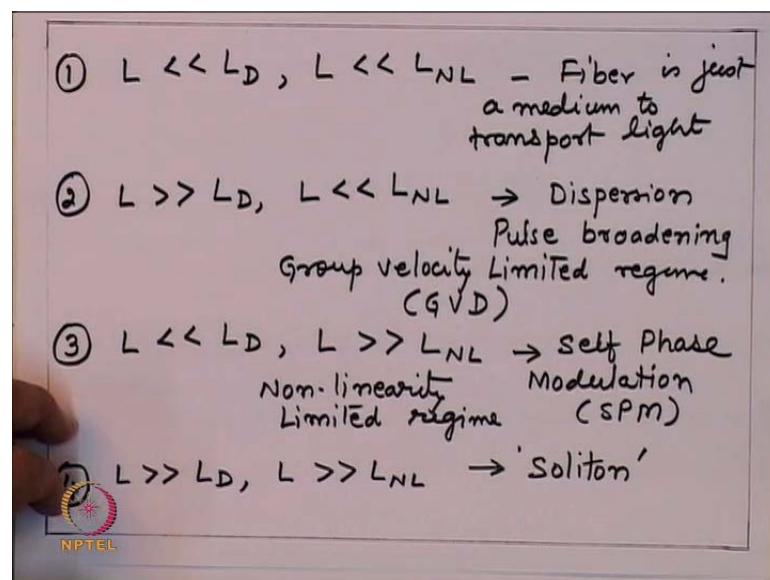 ① L << L_D , L << L_NL – Fiber is just
a medium to
transport light
② L >> L_D, L << L_NL → Dispersion
Pulse broadening
Group velocity Limited regime.
(GVD)
③ L << L_D , L >> L_NL → Self Phase
Non-linearity Modulation
Limited regime (SPM)
L >> L_D, L >> L_NL → 'Soliton'
NPTEL